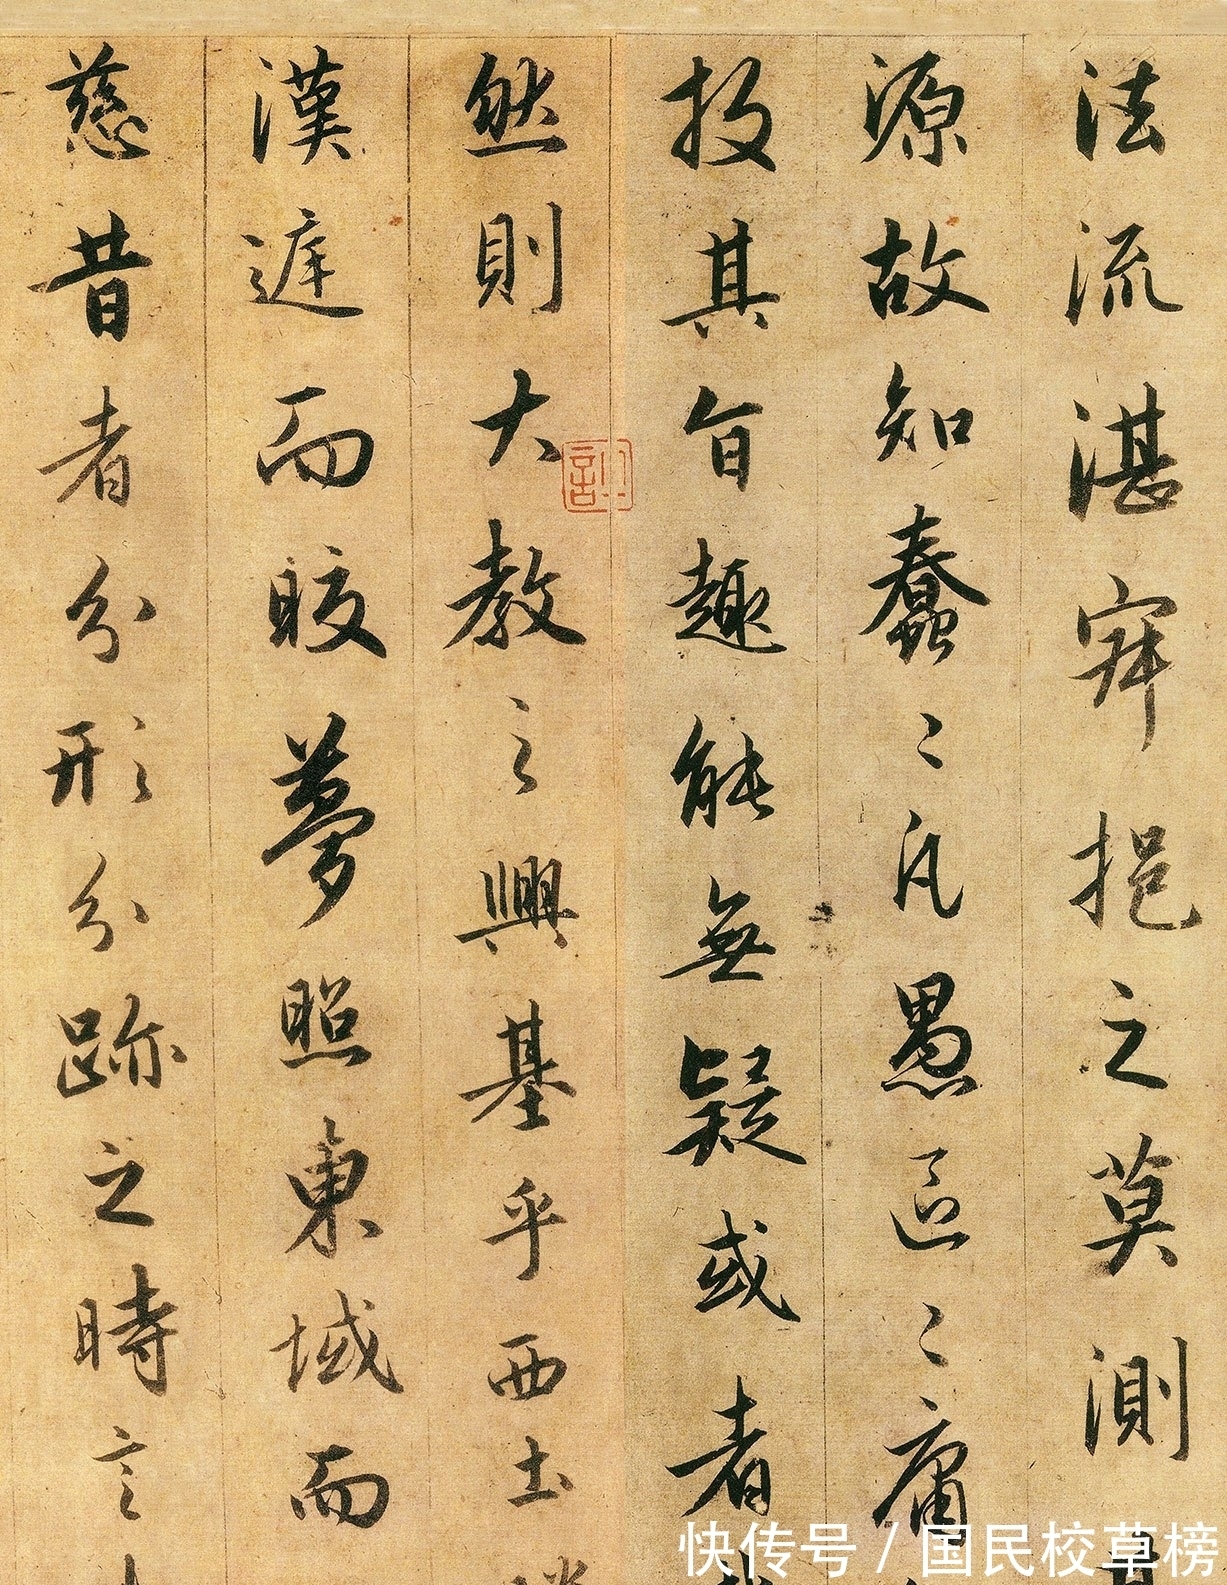 法流湛寂挹之莫測
源故知蠢々凡愚區々庸
投其旨趣能無疑或者
然則大教之興基乎西土
漢邇而皎夢照東域而
慈昔者分形分跡之時言
快传号 / 国民校草榜